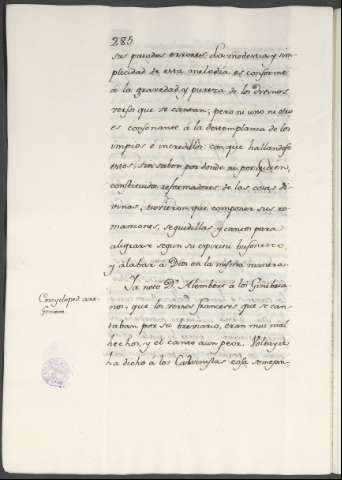 285
sus pasados errores. La modestia y sim-
plicidad de esta melodia es conforme
á la gravedad y pureza de los divinos
versos que se cantan; pero ni uno ni otro
es consonante á la destemplanza de los
impios é incredulos: con que hallandose
estos, sin saber por donde ni por quien,
constituidos reformadores de las cosas di-
vinas, tuvieron que componer sus ro-
manzones, seguidillas y cantos para
alegrarse segun su espiritu bufonesco,
y alabar á Dios en la misma manera.
Ya noto D'Alembert á los Ginebri-
nos, que los versos franceses que se can-
taban por su breviario, eran mui mal
hechos, y el canto aun peor. Voltayre
ha dicho á los Calvinistas cosa semejan-
Encyclopéd. art.
Geneve.